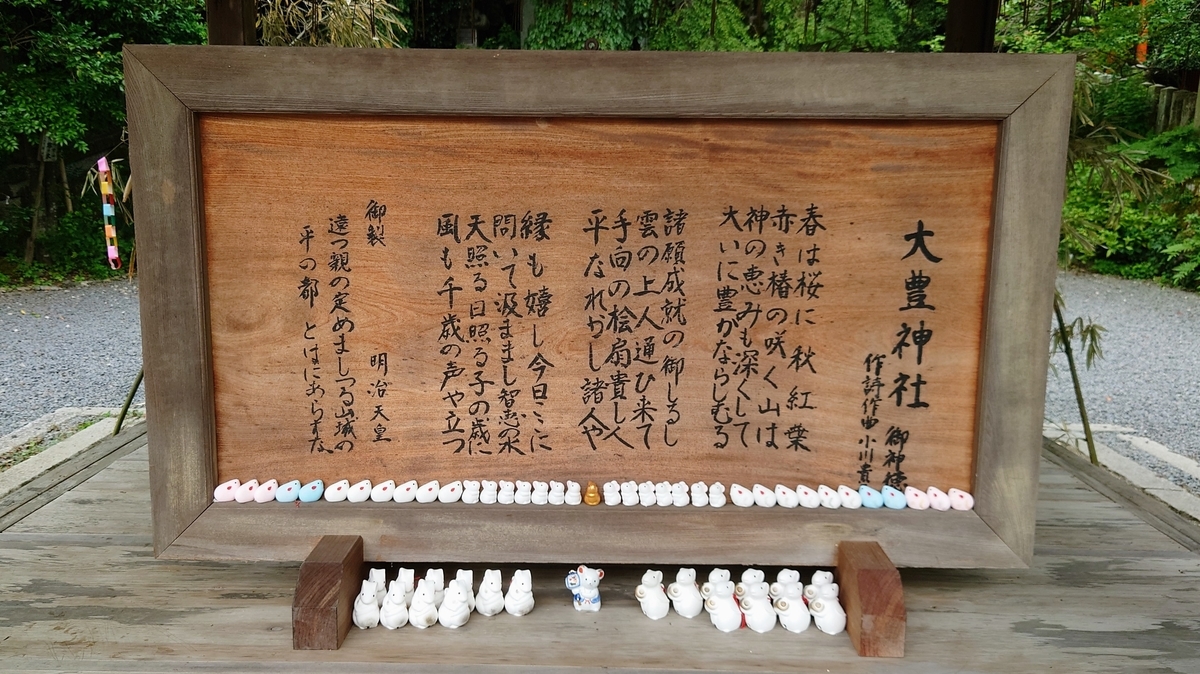 大豊神社
御神徳
作詩作曲 小川貴
春は桜に 秋紅葉
赤き椿の咲く山は
神の恵みも深くして
大いに豊かならしむる
諸願成就の御しるし
雲の上人通ひ来て
手向の桧扇貴し人
平なれかし諸人や
縁も嬉し今日ここに
問いて汲ままし智恵の水
天照る日照る子の歳に
風も千歳の声や立つ
御製
明治天皇
遠つ親の定めましつる山城の
平の都 とはにあらすな